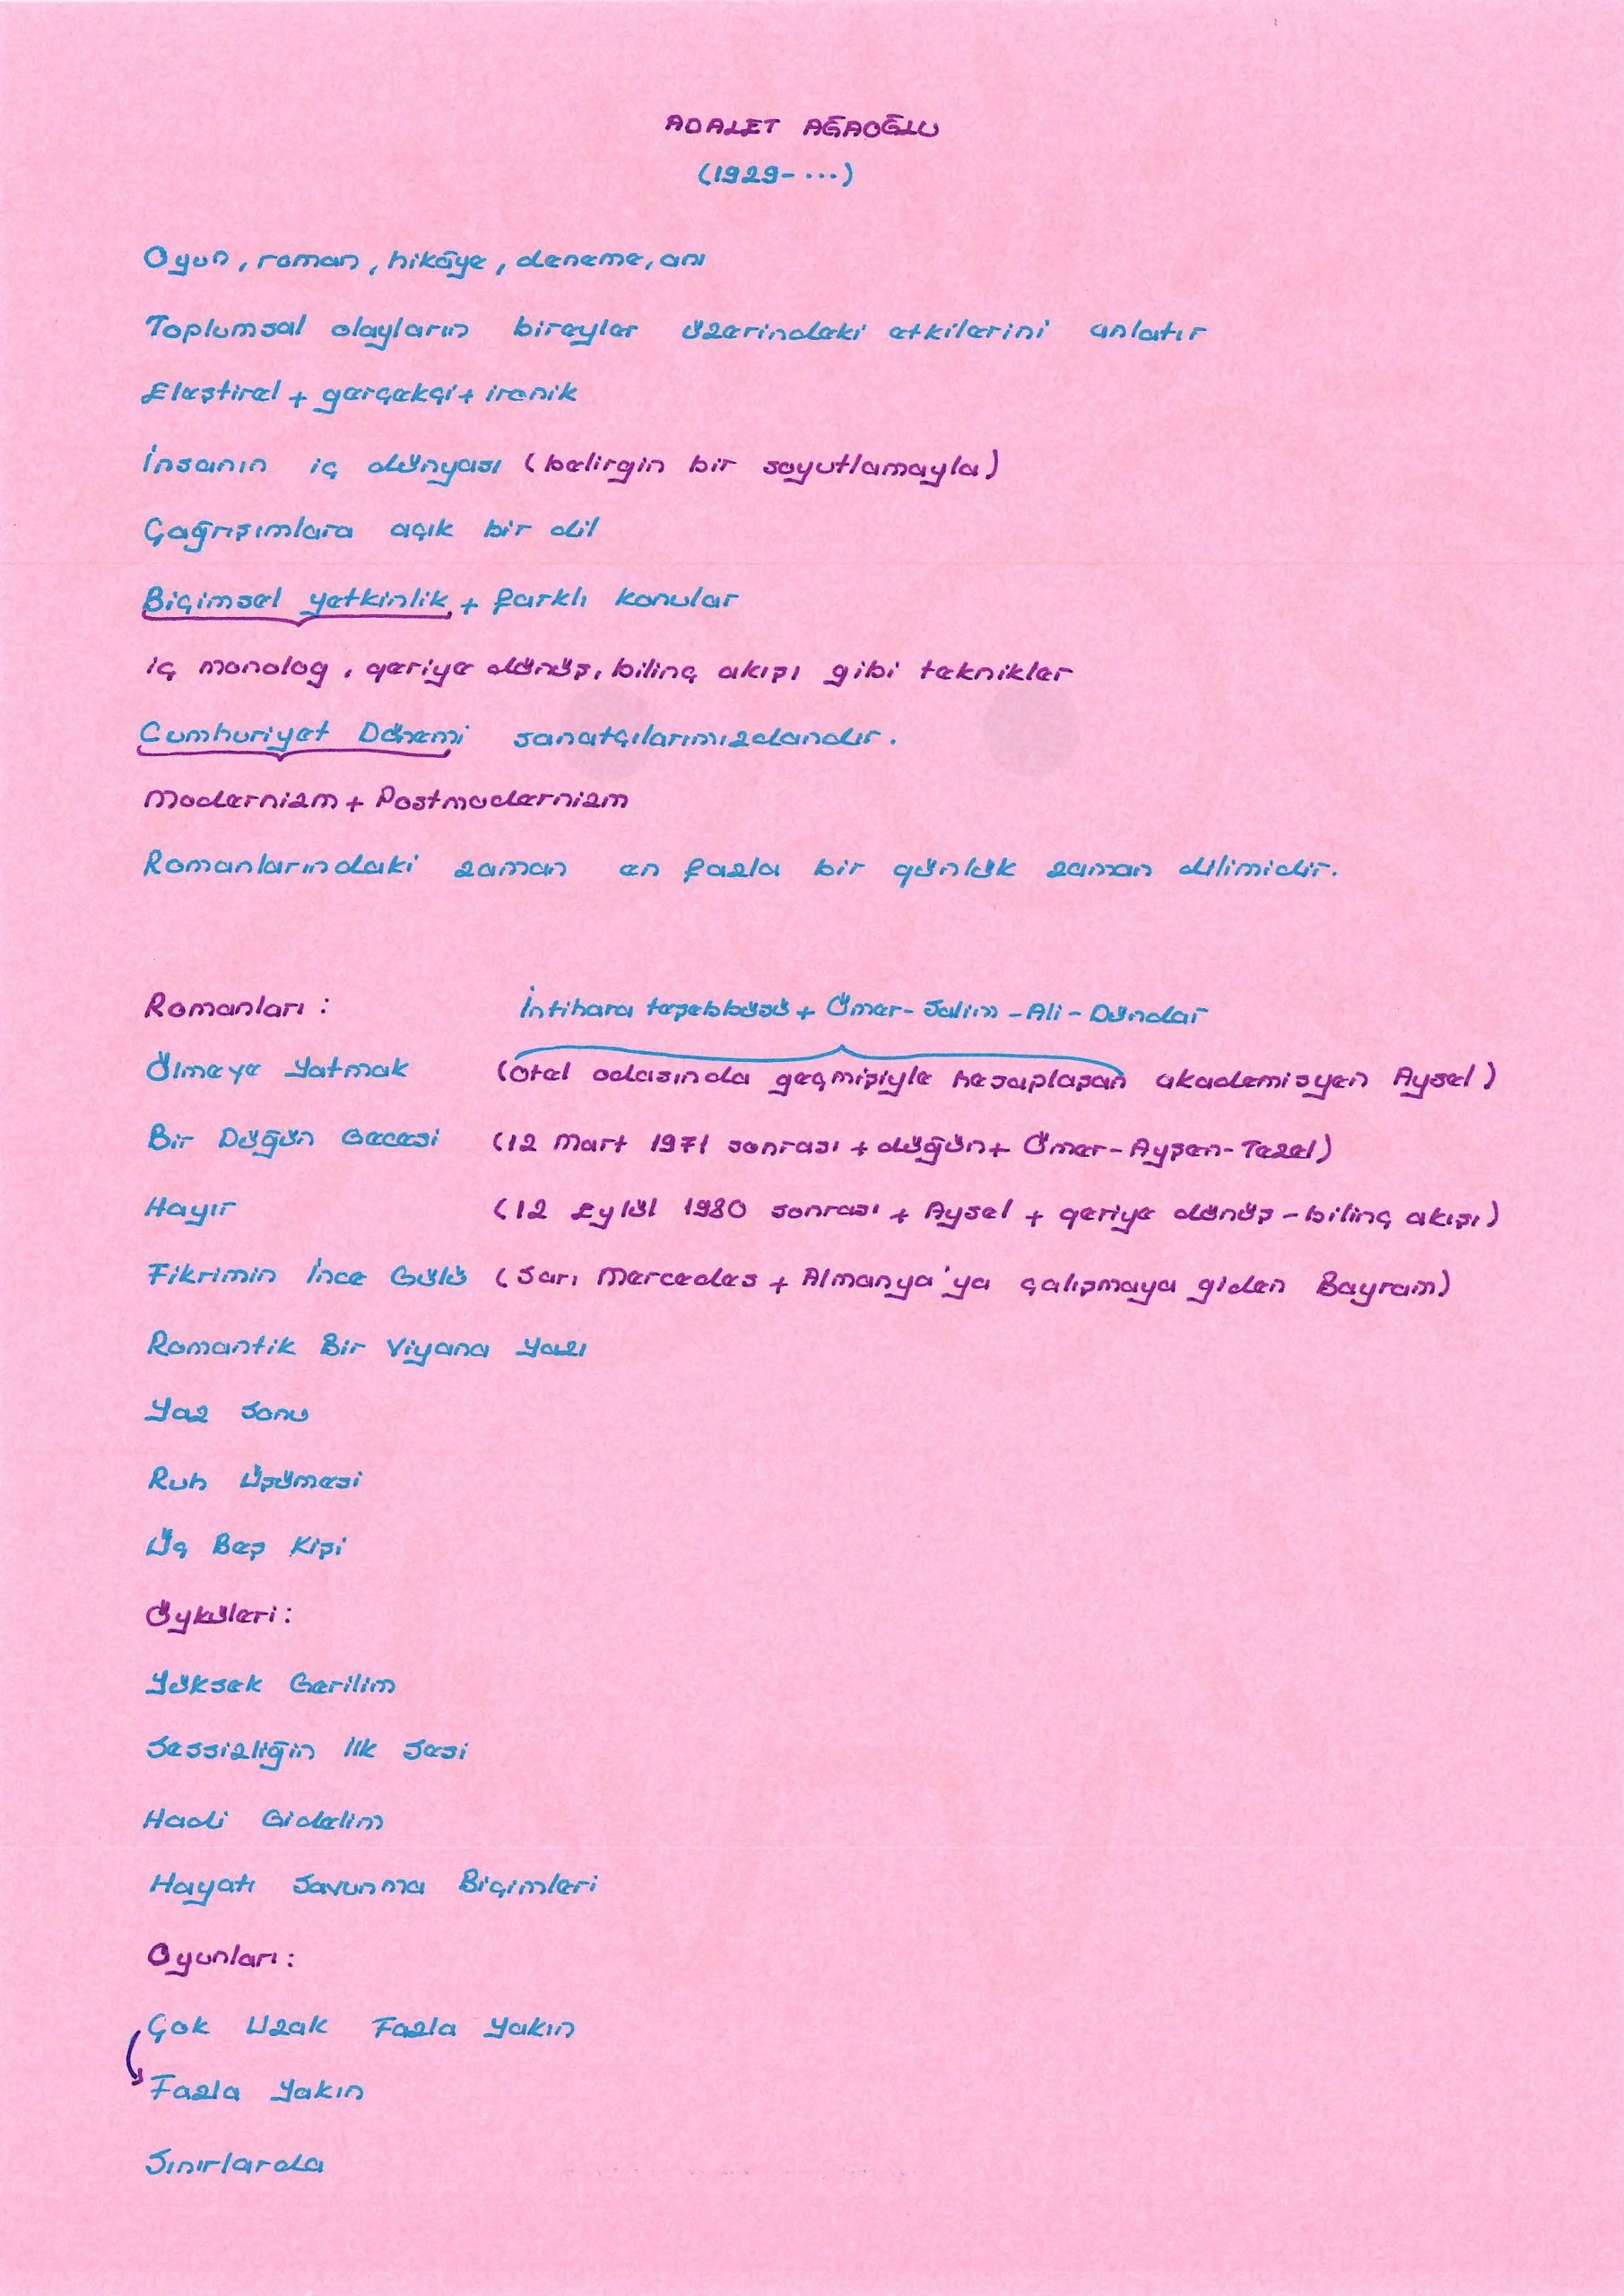 ADALET AĞAOĞLU
(1929- ...)
Oyun, roman, hikâye, deneme, anı
Toplumsal olayların bireyler üzerindeki etkilerini anlatır
Eleştirel + gerçekçi + ironik
İnsanın iç dünyası (belirgin bir soyutlamayla)
Çağrışımlara açık bir dil
Biçimsel yetkinlik + farklı konular
iç monolog, geriye dönüş, bilinç akışı gibi teknikler
Cumhuriyet Dönemi sanatçılarımızdandır.
Modernizm + Postmodernizm
Romanlarındaki zaman en fazla bir günlük zaman dilimidir.
Romanları: İntihara teşebbüsü + Ömer - Salim - Ali - Dündar
Ölmeye Yatmak (Otel odasında geçmişiyle hesaplaşan akademisyen Aysel)
Bir Düğün Gecesi (12 Mart 1971 sonrası + düğün + Ömer - Ayşen - Tezel)
Hayır (12 Eylül 1980 sonrası + Aysel + geriye dönüş - bilinç akışı)
Fikrimin İnce Gülü (Sarı Mercedes + Almanya'ya çalışmaya giden Bayram)
Romantik Bir Viyana Yazı
Yaz Sonu
Ruh Üşümesi
Üç Beş Kişi
Öyküleri:
Yüksek Gerilim
Sessizliğin İlk Sesi
Hadi Gidelim
Hayatı Savunma Biçimleri
Oyunları:
Çok Uzak Fazla Yakın
Fazla Yakın
Sınırlarda